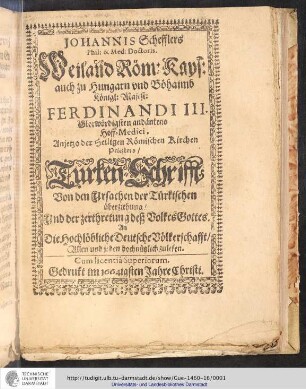 JOHANNIS Schefflers
Phil: & Med: Doctoris.
Weiland Röm: Kays:
auch zu Hungarn vnd Böhaimb
Königl: Majest:
FERDINANDI III.
Glorwürdigsten andänkens
Hoff-Medici.
Anjetzo der Heiligen Römischen Kirchen
Priesters /
Türken-Schrifft
Von den Ursachen der Türkischen
überziehung /
Und der zertretung deß Volkes Gottes.
An
Die Hochlöbliche Deutsche Völkerschafft /
Allen und jeden hochnützlich zulesen.
Cum licentia Superiorum.
Gedrukt im 1664igsten Jahre Christi.
TECHNISCHE
UNIVERSITÄT
DARMSTADT
http://tudigit.ulb.tu-darmstadt.de/show/Gue-1460-16/0001
Universitäts- und Landesbibliothek Darmstadt